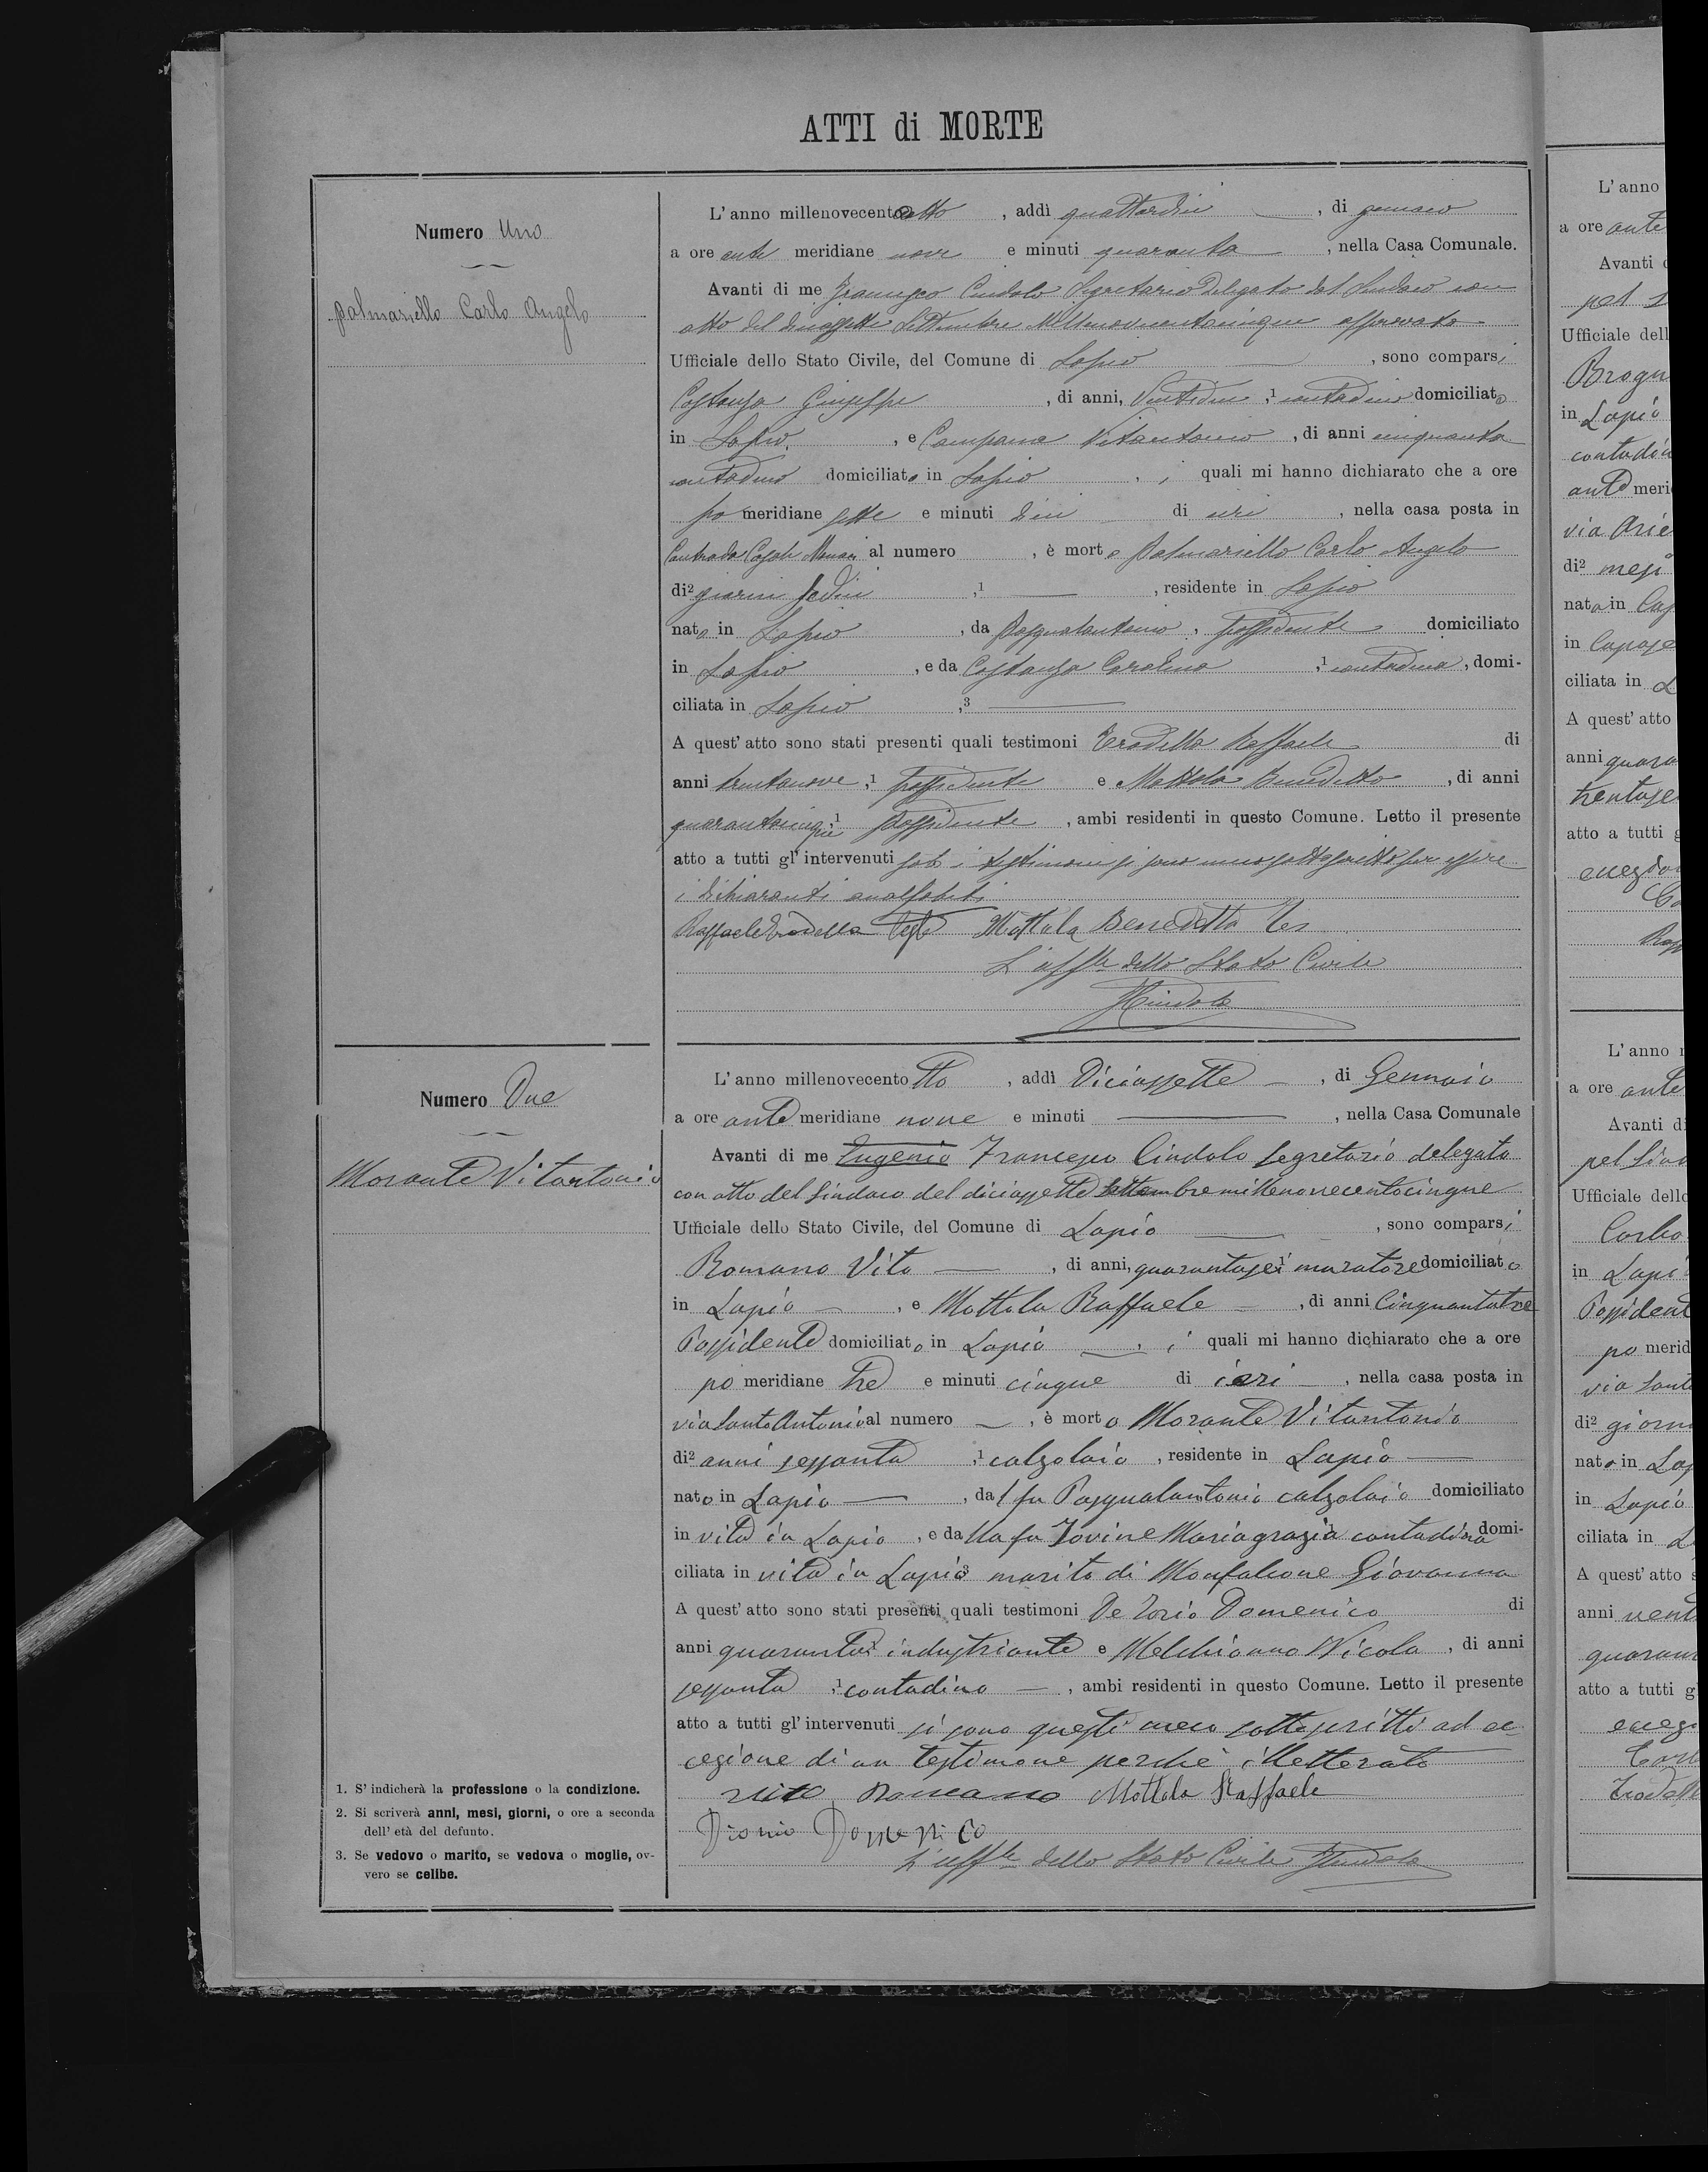 ATTI di MORTE
Numero Uno
Palmariello Carlo Angelo
L'anno millenovecentootto, addì quattordici, di gennaio
a ore anti meridiane nove e minuti quaranta, nella Casa Comunale.
Avanti di me Francesco Cindolo Segretario Delegato dal Sindaco con
atto del diciassette Settembre Millenovecentocinque approvato
Ufficiale dello Stato Civile, del Comune di Lapio, sono comparsi
Costanza Giuseppe, di anni, Ventidue,¹ contadino domiciliato
in Lapio, e Campana Vitantonio, di anni cinquanta
contadino domiciliato in Lapio, i quali mi hanno dichiarato che a ore
po meridiane sette e minuti dieci di ieri, nella casa posta in
Contrada Casale al numero , è morto Palmariello Carlo Angelo
di² giorni sedici,¹ — , residente in Lapio
nato in Lapio, da Pasqualantonio, possidente domiciliato
in Lapio, e da Costanza Carolina,¹ contadina, domi-
ciliata in Lapio,³ —
A quest'atto sono stati presenti quali testimoni Erodella Raffaele di
anni trentanove,¹ possidente e Mottola Benedetto, di anni
quarantacinque,¹ possidente, ambi residenti in questo Comune. Letto il presente
atto a tutti gl'intervenuti soli i testimoni si sono meco sottoscritti per essere
i dichiaranti analfabeti
Raffaele Erodella Teste Mottola Benedetto Tes
L'uffle dello Stato Civile
FCindolo
Numero Due
Morante Vitantonio
L'anno millenovecentotto, addì Diciassette —, di Gennaio
a ore ante meridiane nove e minuti —, nella Casa Comunale
Avanti di me Eugenio Francesco Cindolo Segretario delegato
con atto del Sindaco del diciassette Settembre millenovecentocinque
Ufficiale dello Stato Civile, del Comune di Lapio —, sono comparsi
Romano Vito —, di anni, quarantasei¹ muratore domiciliato
in Lapio —, e Mottola Raffaele —, di anni Cinquantatre
Possidente domiciliato in Lapio —, i quali mi hanno dichiarato che a ore
po meridiane tre e minuti cinque di ieri —, nella casa posta in
via Santo Antonio al numero —, è morto Morante Vitantonio
di² anni sessanta,¹ calzolaio, residente in Lapio —
nato in Lapio —, dal fu Pasqualantonio calzolaio domiciliato
in vita in Lapio, e dalla fu Iovine Mariagrazia contadina domi-
ciliata in vita in Lapio³ marito di Monfalcone Giovanna
A quest'atto sono stati presenti quali testimoni De Iorio Domenico di
anni quaranta¹ industriante e Melchionno Nicola, di anni
sessanta,¹ contadino —, ambi residenti in questo Comune. Letto il presente
atto a tutti gl'intervenuti si sono questi meco sottoscritti ad ec-
cezione di un testimone perchè illetterato
Vito Romano Mottola Raffaele
Diorio Domenico
L'uffle dello Stato Civile FCindolo
1. S'indicherà la professione o la condizione.
2. Si scriverà anni, mesi, giorni, o ore a seconda
dell'età del defunto.
3. Se vedovo o marito, se vedova o moglie, ov-
vero se celibe.
L'anno
a ore ante
Avanti
Ufficiale dell
in Lapio
ante meri
di² mesi
nato in
in
ciliata in
A quest'atto
anni
atto a tutti
L'anno
a ore ante
Avanti di
Ufficiale dello
in Lapio
Possident
po merid
via Santo
di² giorni
nato in
in Lapio
ciliata in
A quest'atto
anni
atto a tutti g